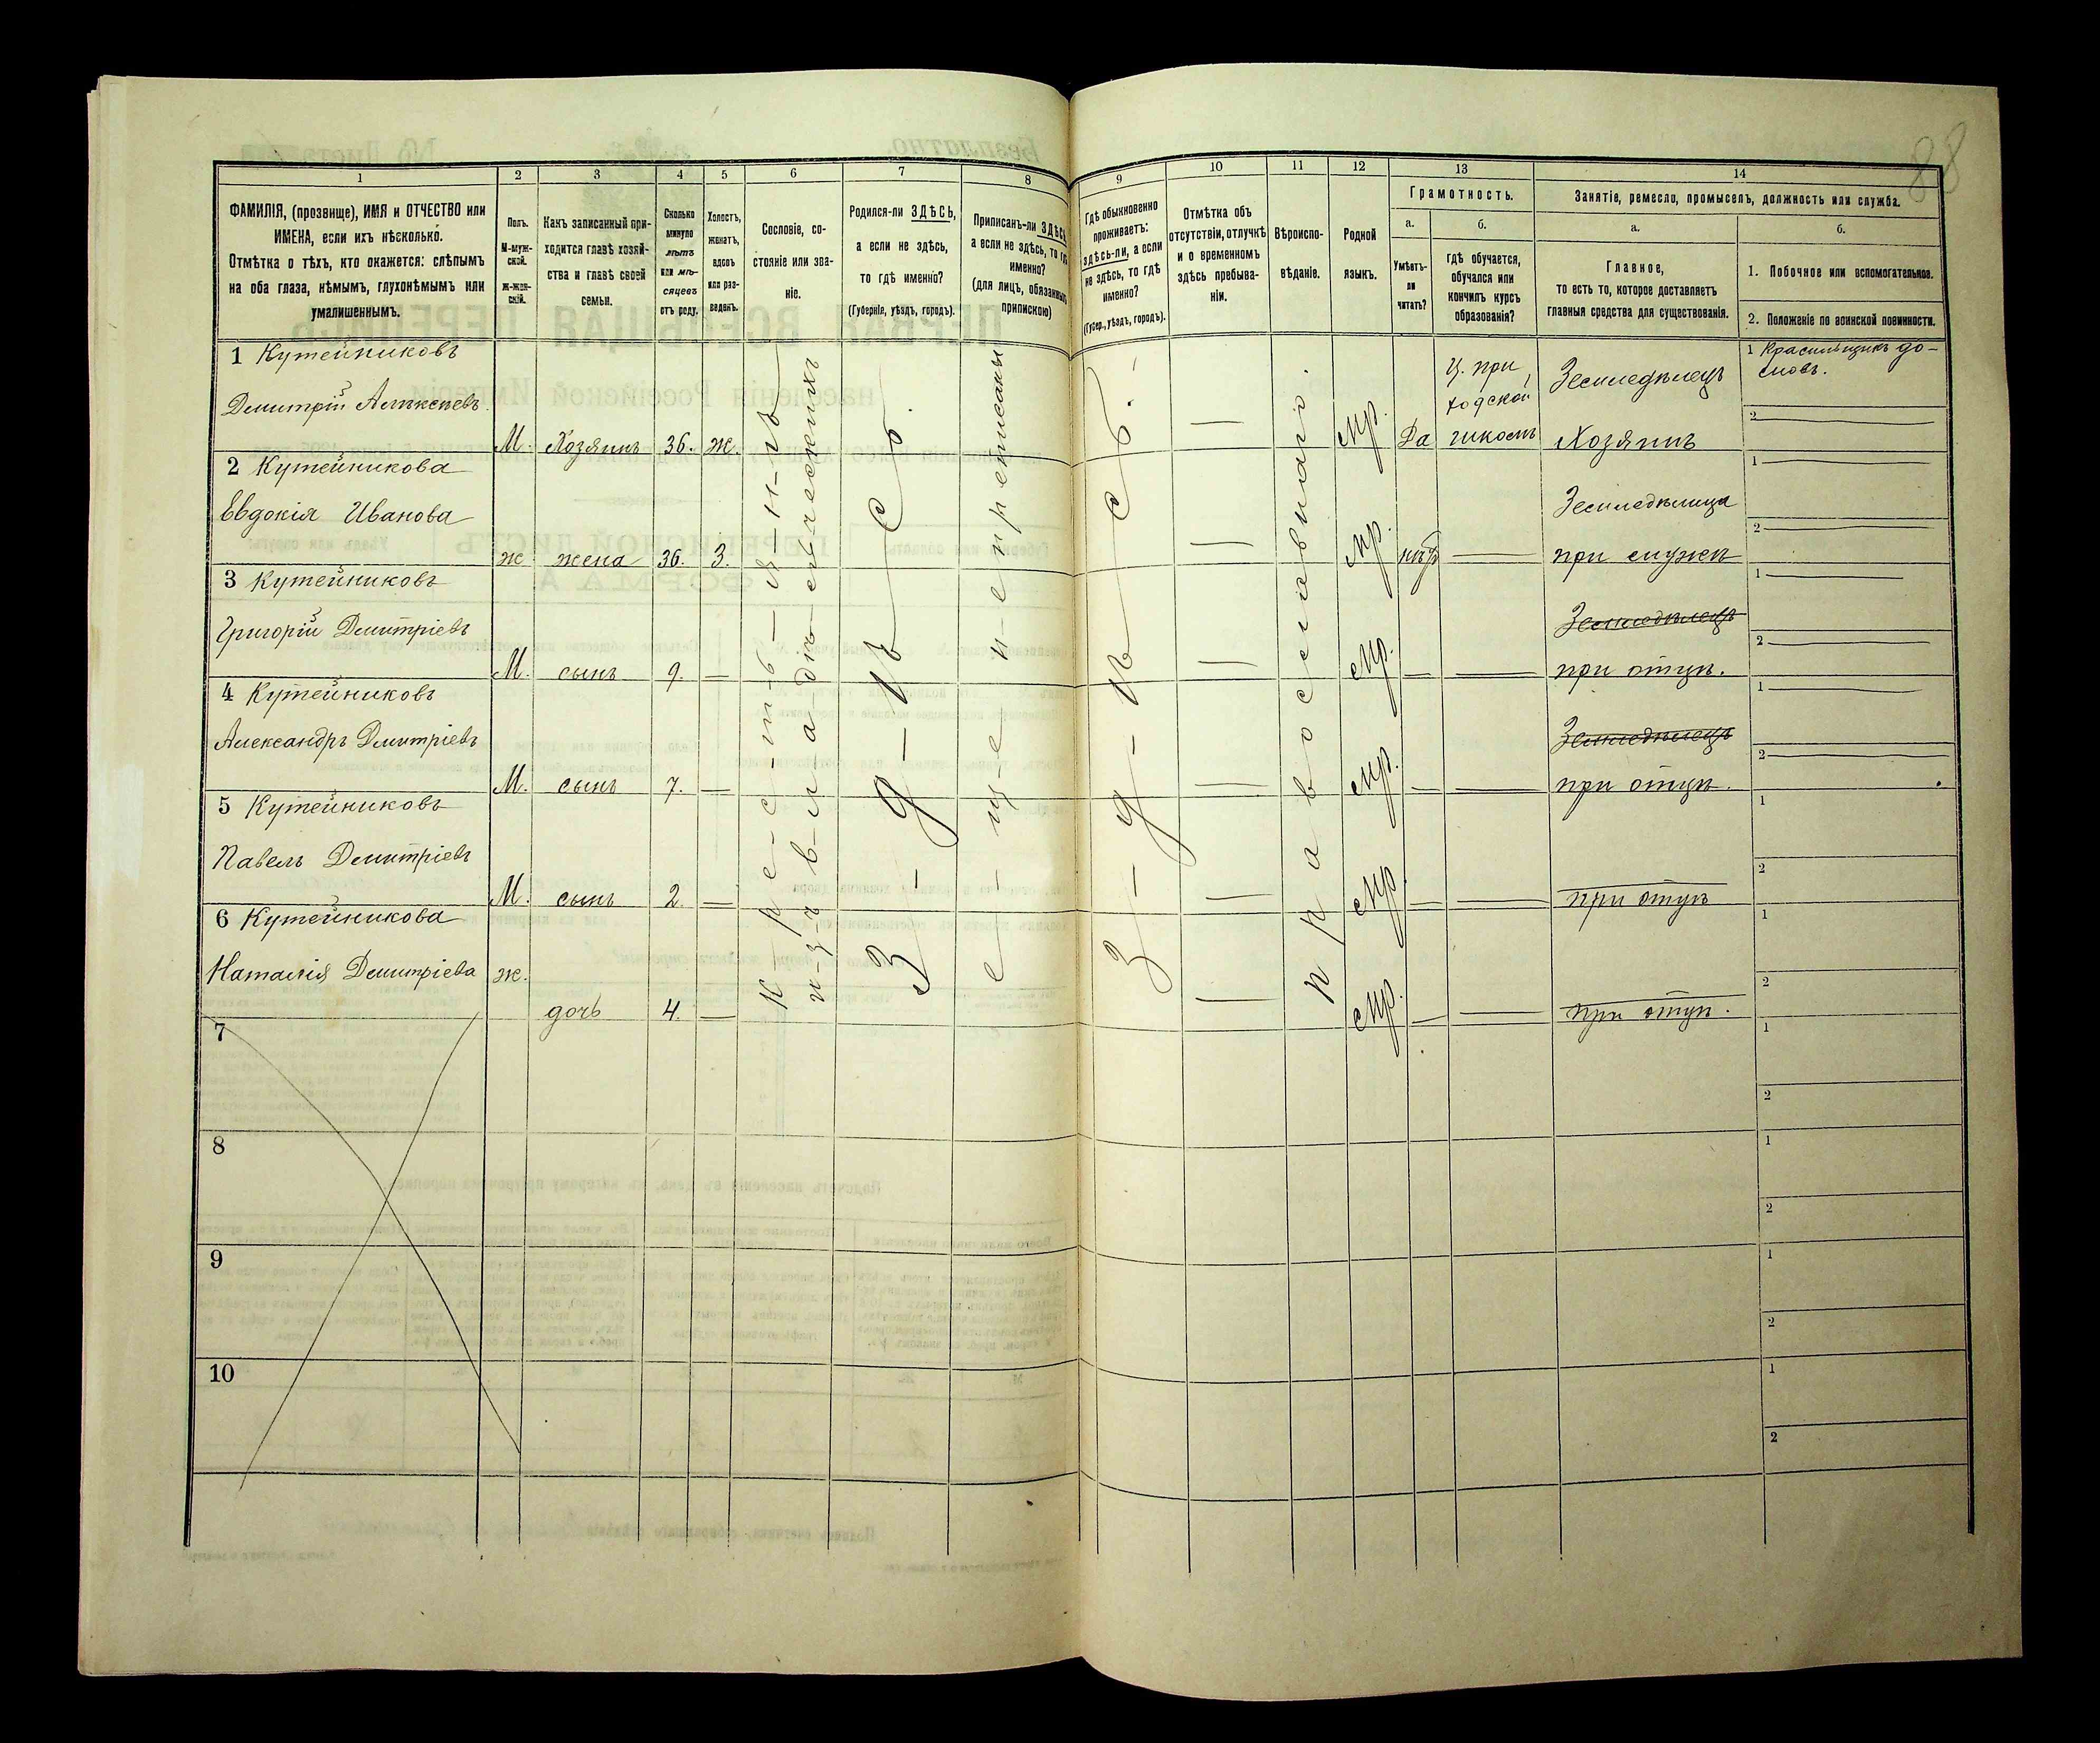 88
1
2
3
4
5
6
7
8
9
10
11
12
13
14
ФАМИЛІЯ, (прозвище), ИМЯ и ОТЧЕСТВО или
ИМЕНА, если ихъ нѣсколько.
Отмѣтка о тѣхъ, кто окажется: слѣпымъ
на оба глаза, нѣмымъ, глухонѣмымъ или
умалишеннымъ.
Полъ.
М-муж-
ской.
ж-жен-
скій.
Какъ записанный при-
ходится главѣ хозяй-
ства и главѣ своей
семьи.
Сколько
минуло
лѣтъ
или мѣ-
сяцевъ
отъ роду.
Холостъ,
женатъ,
вдовъ
или раз-
веденъ.
Сословіе, со-
стояніе или зва-
ніе.
Родился-ли ЗДѢСЬ,
а если не здѣсь,
то гдѣ именно?
(Губернія, уѣздъ, городъ).
Приписанъ-ли ЗДѢСЬ
а если не здѣсь, то гдѣ
именно?
(для лицъ, обязанныхъ
припискою)
Гдѣ обыкновенно
проживаетъ:
здѣсь-ли, а если
не здѣсь, то гдѣ
именно?
(Губер., уѣздъ, городъ).
Отмѣтка объ
отсутствіи, отлучкѣ
и о временномъ
здѣсь пребыва-
ніи.
Вѣроиспо-
вѣданіе.
Родной
языкъ.
Грамотность.
а.
Умѣетъ-
ли
читать?
б.
гдѣ обучается,
обучался или
кончилъ курсъ
образованія?
Занятіе, ремесло, промыселъ, должность или служба.
а.
Главное,
то есть то, которое доставляетъ
главныя средства для существованія.
б.
1. Побочное или вспомогательное.
2. Положеніе по воинской повинности.
1 Кутейниковъ
Димитрій Алексѣевъ.
М. Хозяинъ 36. ж.
К-р-е-с-т-ь-я-н-ъ
и-з-ъ в-л-а-дѣ-льческихъ
З-д-ѣ-с-ь.
н-е приписаны
З-д-ѣ-с-ь.
православнаго.
Мр. Да
Ц. при
ходской
школѣ
Земледѣлецъ
Хозяинъ
1 Красильщикъ до-
мовъ.
2
2 Кутейникова
Евдокія Иванова
ж жена 36. З.
Мр. нѣтъ
Земледѣлица
при мужѣ
1
2
3 Кутейниковъ
Григорій Димитріевъ
М. сынъ 9. Мр.
Земледѣлецъ
при отцѣ.
1
2
4 Кутейниковъ
Александръ Димитріевъ
М. сынъ 7. Мр.
Земледѣлецъ
при отцѣ.
1
2
5 Кутейниковъ
Павелъ Димитріевъ
М. сынъ 2. Мр. при отцѣ
1
2
6 Кутейникова
Наталія Димитріева ж.
дочь 4. Мр. при отцѣ.
1
2
7
1
2
8
1
2
9
1
2
10
1
2